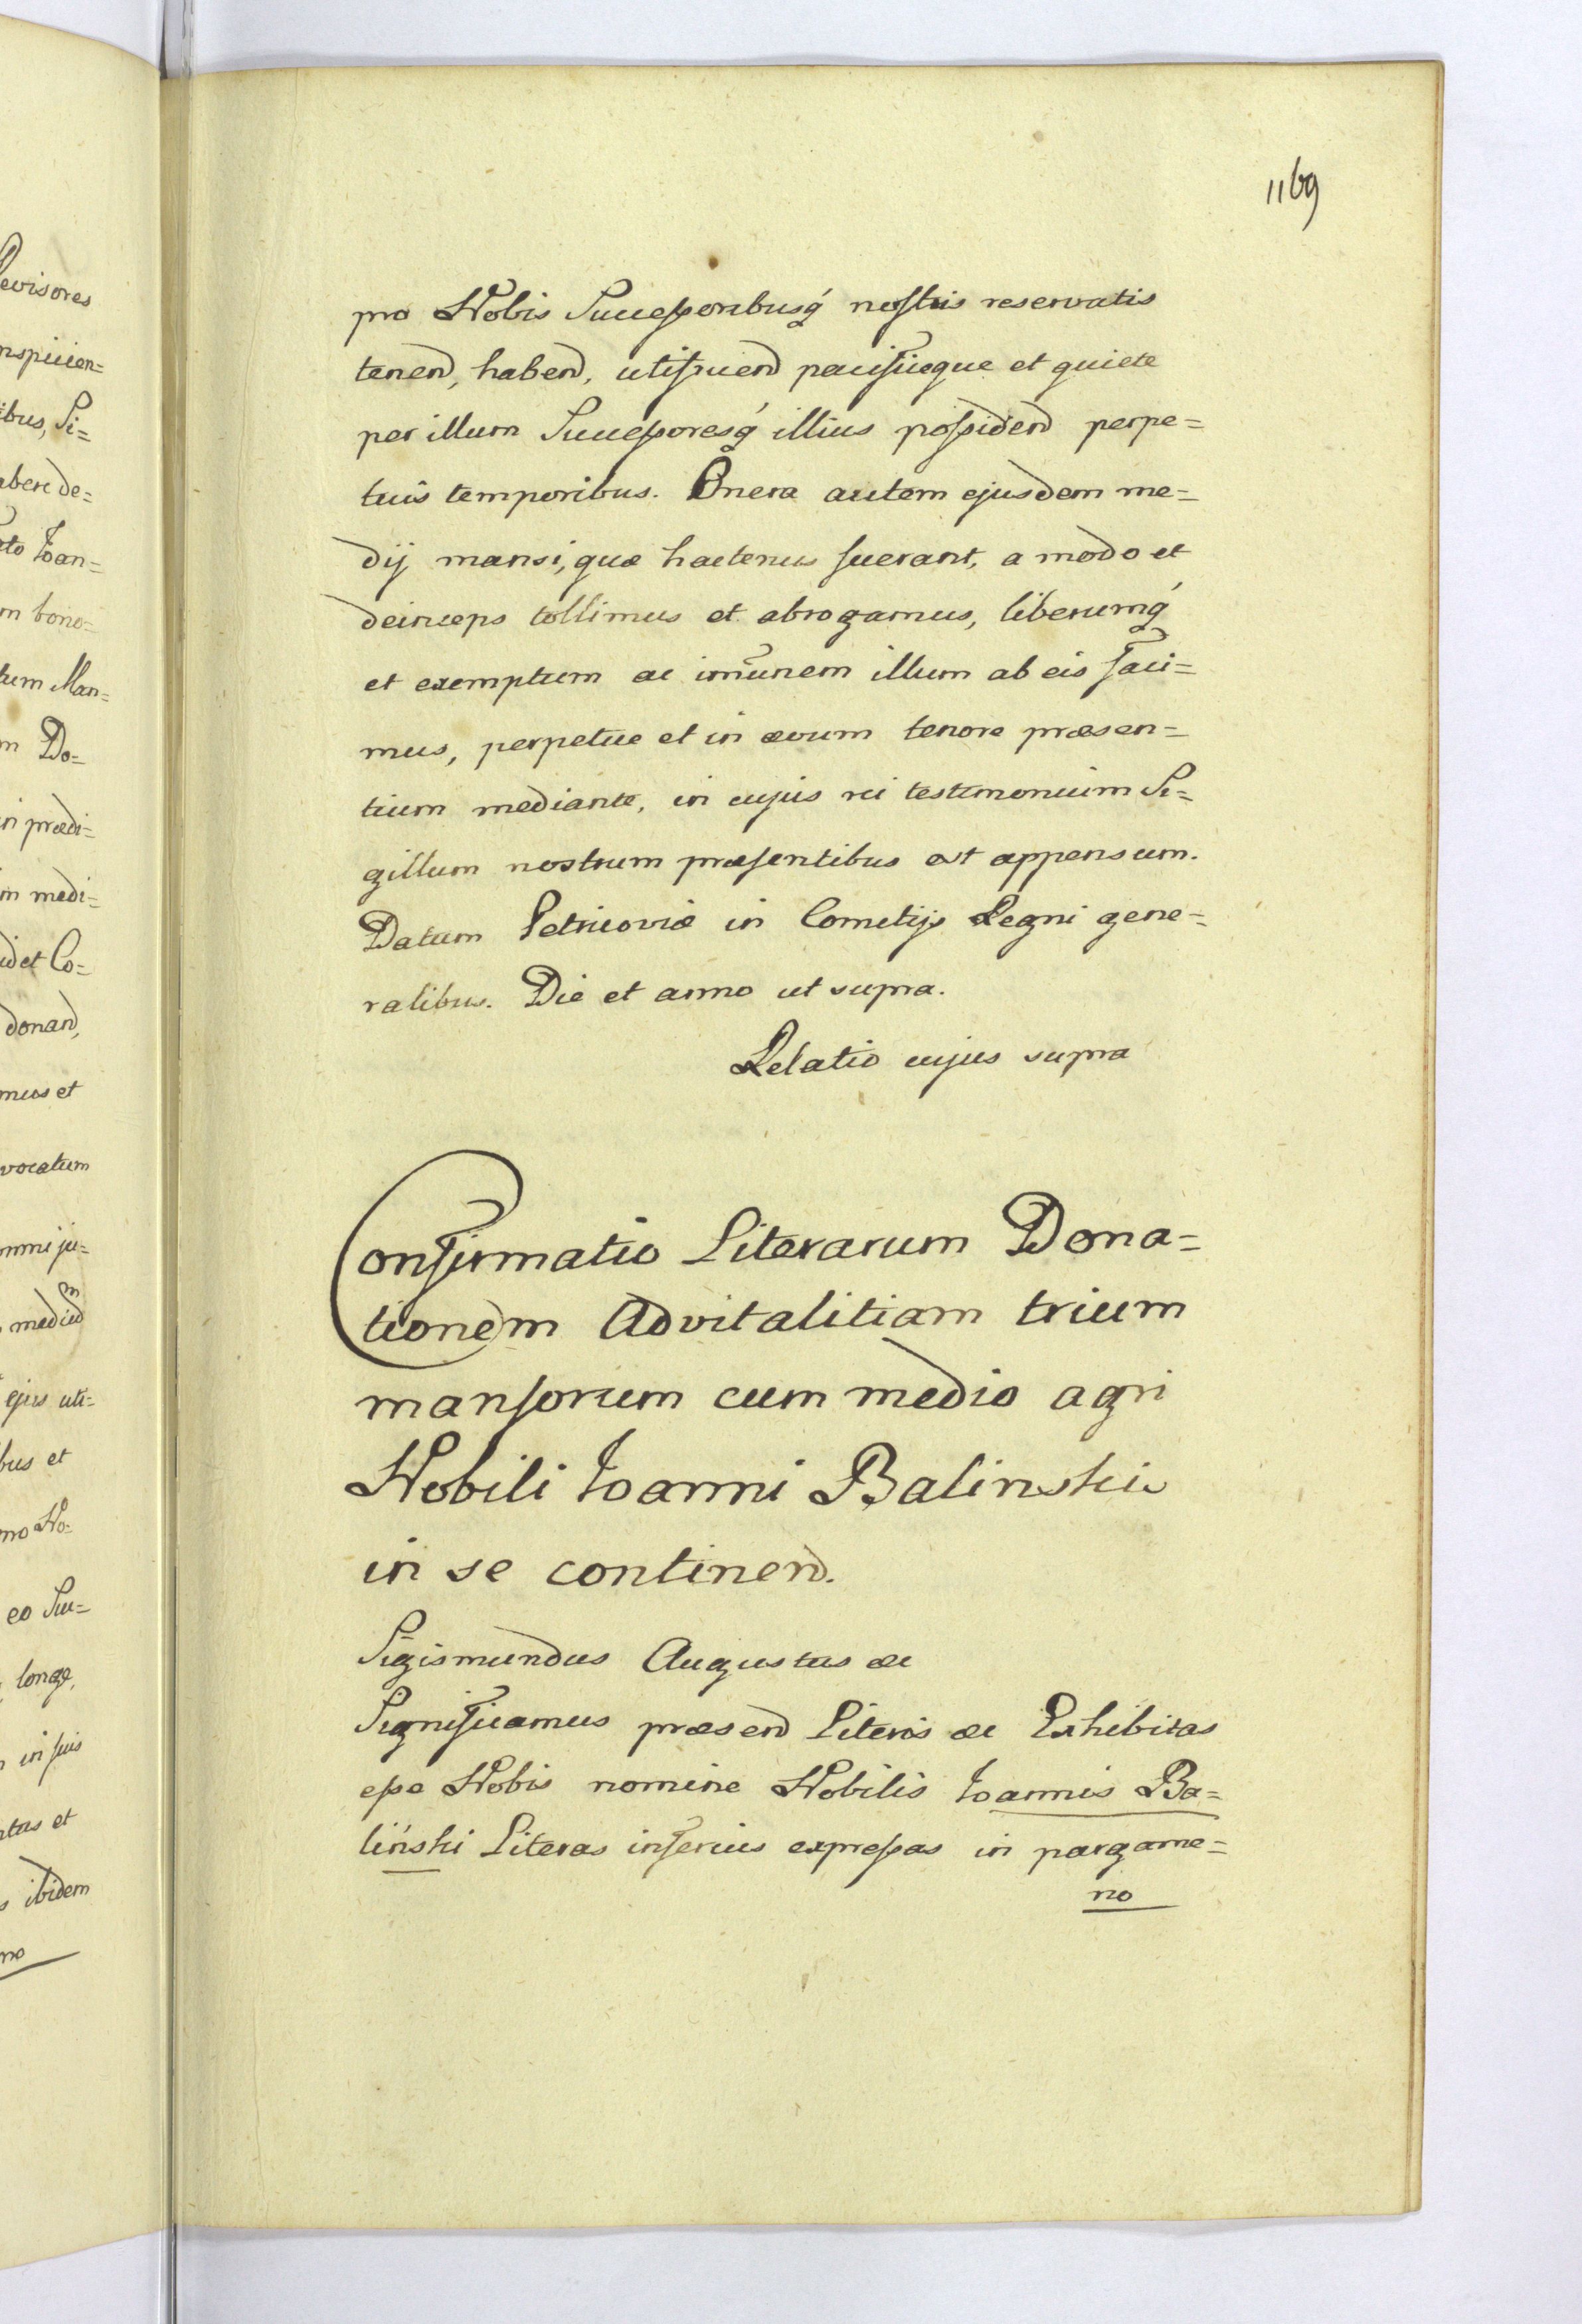 1169
pro Nobis Successoribusq́ nostris reservatis
tenend, habend, utifruend pacificeque et quiete
per illum Successoresq́ illius possidend perpe=
tuis temporibus. Onera autem ejusdem me=
dij mansi, quæ hactenus fuerant, a modo et
deinceps tollimus et abrogamus, liberumq́
et exemptum ac im̃unem illum ab eis faci=
mus, perpetue et in ævum tenore præsen=
tium mediante, in cujus rei testimonium Si=
gillum nostrum præsentibus est appensum.
Datum Petricoviæ in Comitijs Regni gene=
ralibus. Die et anno ut supra.
Relatio cujus supra
Confirmatio Literarum Dona=
tionem Advitalitiam trium
mansorum cum medio agri
Nobili Joanni Balinskis
in se continend.
Sigismundus Augustus &c
Significamus præsend Literis &c Exhibitas
esse Nobis nomine Nobilis Joannis Ba=
liński Literas inferius expressas in pargame=
no
evisores
nspicien=
ibus, Si=
abere de=
Joan=
m bono=
tum Man=
m Do=
in prædi=
m medi=
id et Co=
donand,
mus et
vocatum
omni ju=
medied
ejus uti=
bus et
mo No=
eo Suc=
longe,
in suis
ntus et
s ibidem
no